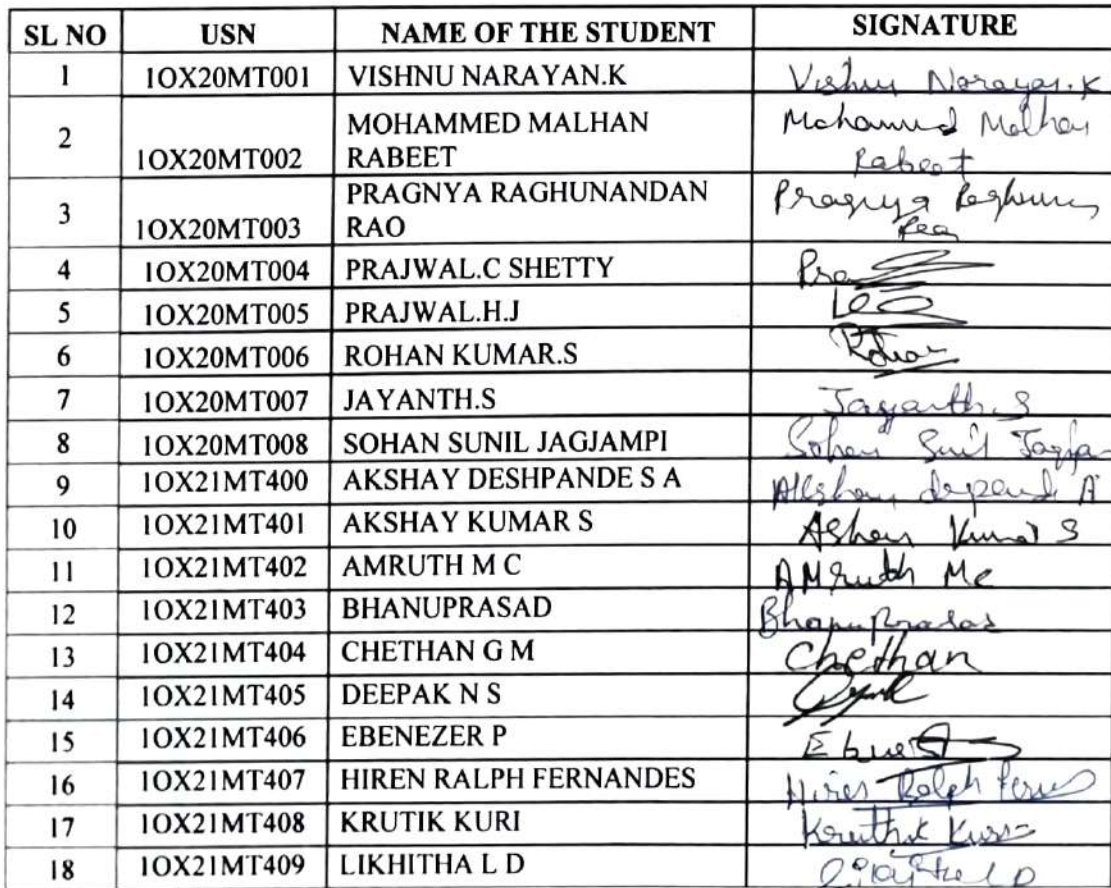 SL NO USN NAME OF THE STUDENT SIGNATURE
1 1OX20MT001 VISHNU NARAYAN.K Vishnu Narayan.K
2 1OX20MT002 MOHAMMED MALHAN Mohammed Malhan
RABEET Rabeet
3 1OX20MT003 PRAGNYA RAGHUNANDAN Pragnya
RAO
4 1OX20MT004 PRAJWAL.C SHETTY Pra
5 1OX20MT005 PRAJWAL.H.J
6 1OX20MT006 ROHAN KUMAR.S Rohan
7 1OX20MT007 JAYANTH.S Jayanth.S
8 1OX20MT008 SOHAN SUNIL JAGJAMPI Sohan Sunil
9 1OX21MT400 AKSHAY DESHPANDE S A
10 1OX21MT401 AKSHAY KUMAR S Kumar S
11 1OX21MT402 AMRUTH M C AMruth Mc
12 1OX21MT403 BHANUPRASAD BhanuPrasad
13 1OX21MT404 CHETHAN G M Chethan
14 1OX21MT405 DEEPAK N S
15 1OX21MT406 EBENEZER P
16 1OX21MT407 HIREN RALPH FERNANDES Hiren Ralph
17 1OX21MT408 KRUTIK KURI
18 1OX21MT409 LIKHITHA L D